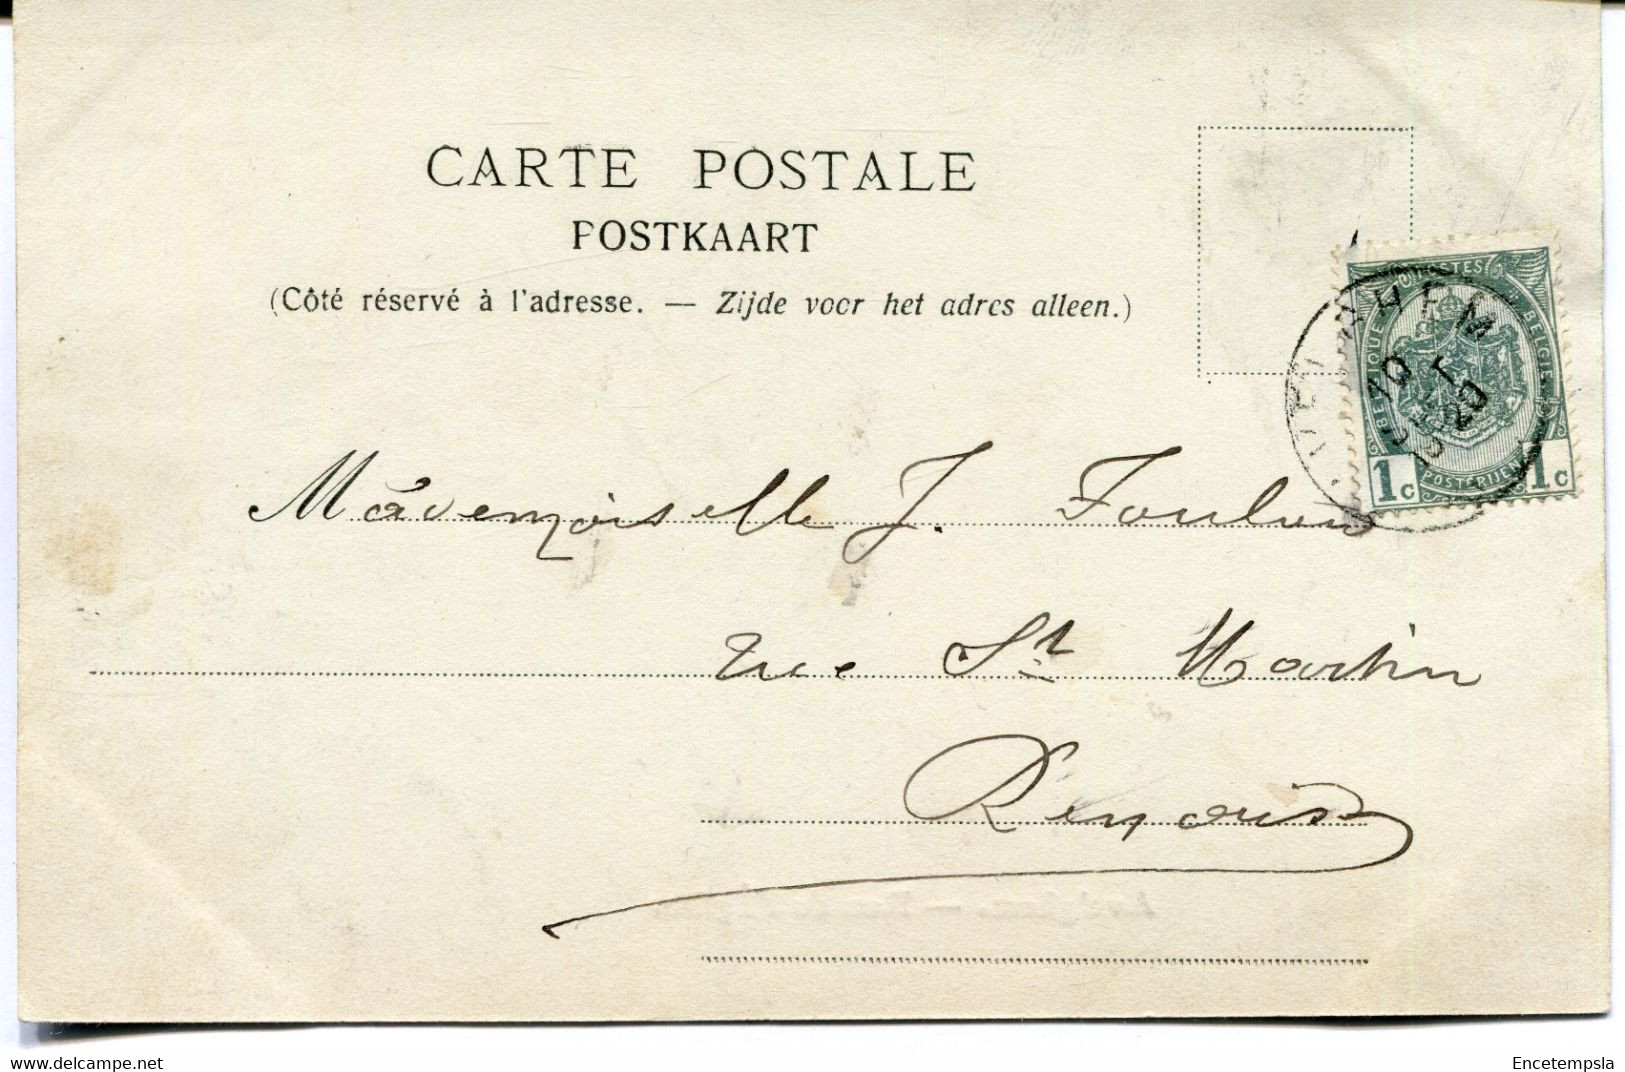 CARTE POSTALE
POSTKAART
(Côté réservé à l'adresse. — Zijde voor het adres alleen.)
POSTES
BELGIQUE
BELGIE
POSTERIJEN
1c 1c
Mademoiselle J.
rue St Martin
delcampe.net
Encetempsla